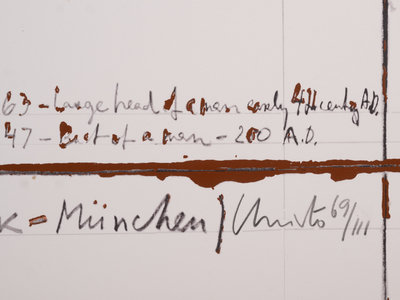 63 - Large head of a man early 4th century A.D.
47 - Bust of a man - 200 A.D.
K - München / Christo 69/III